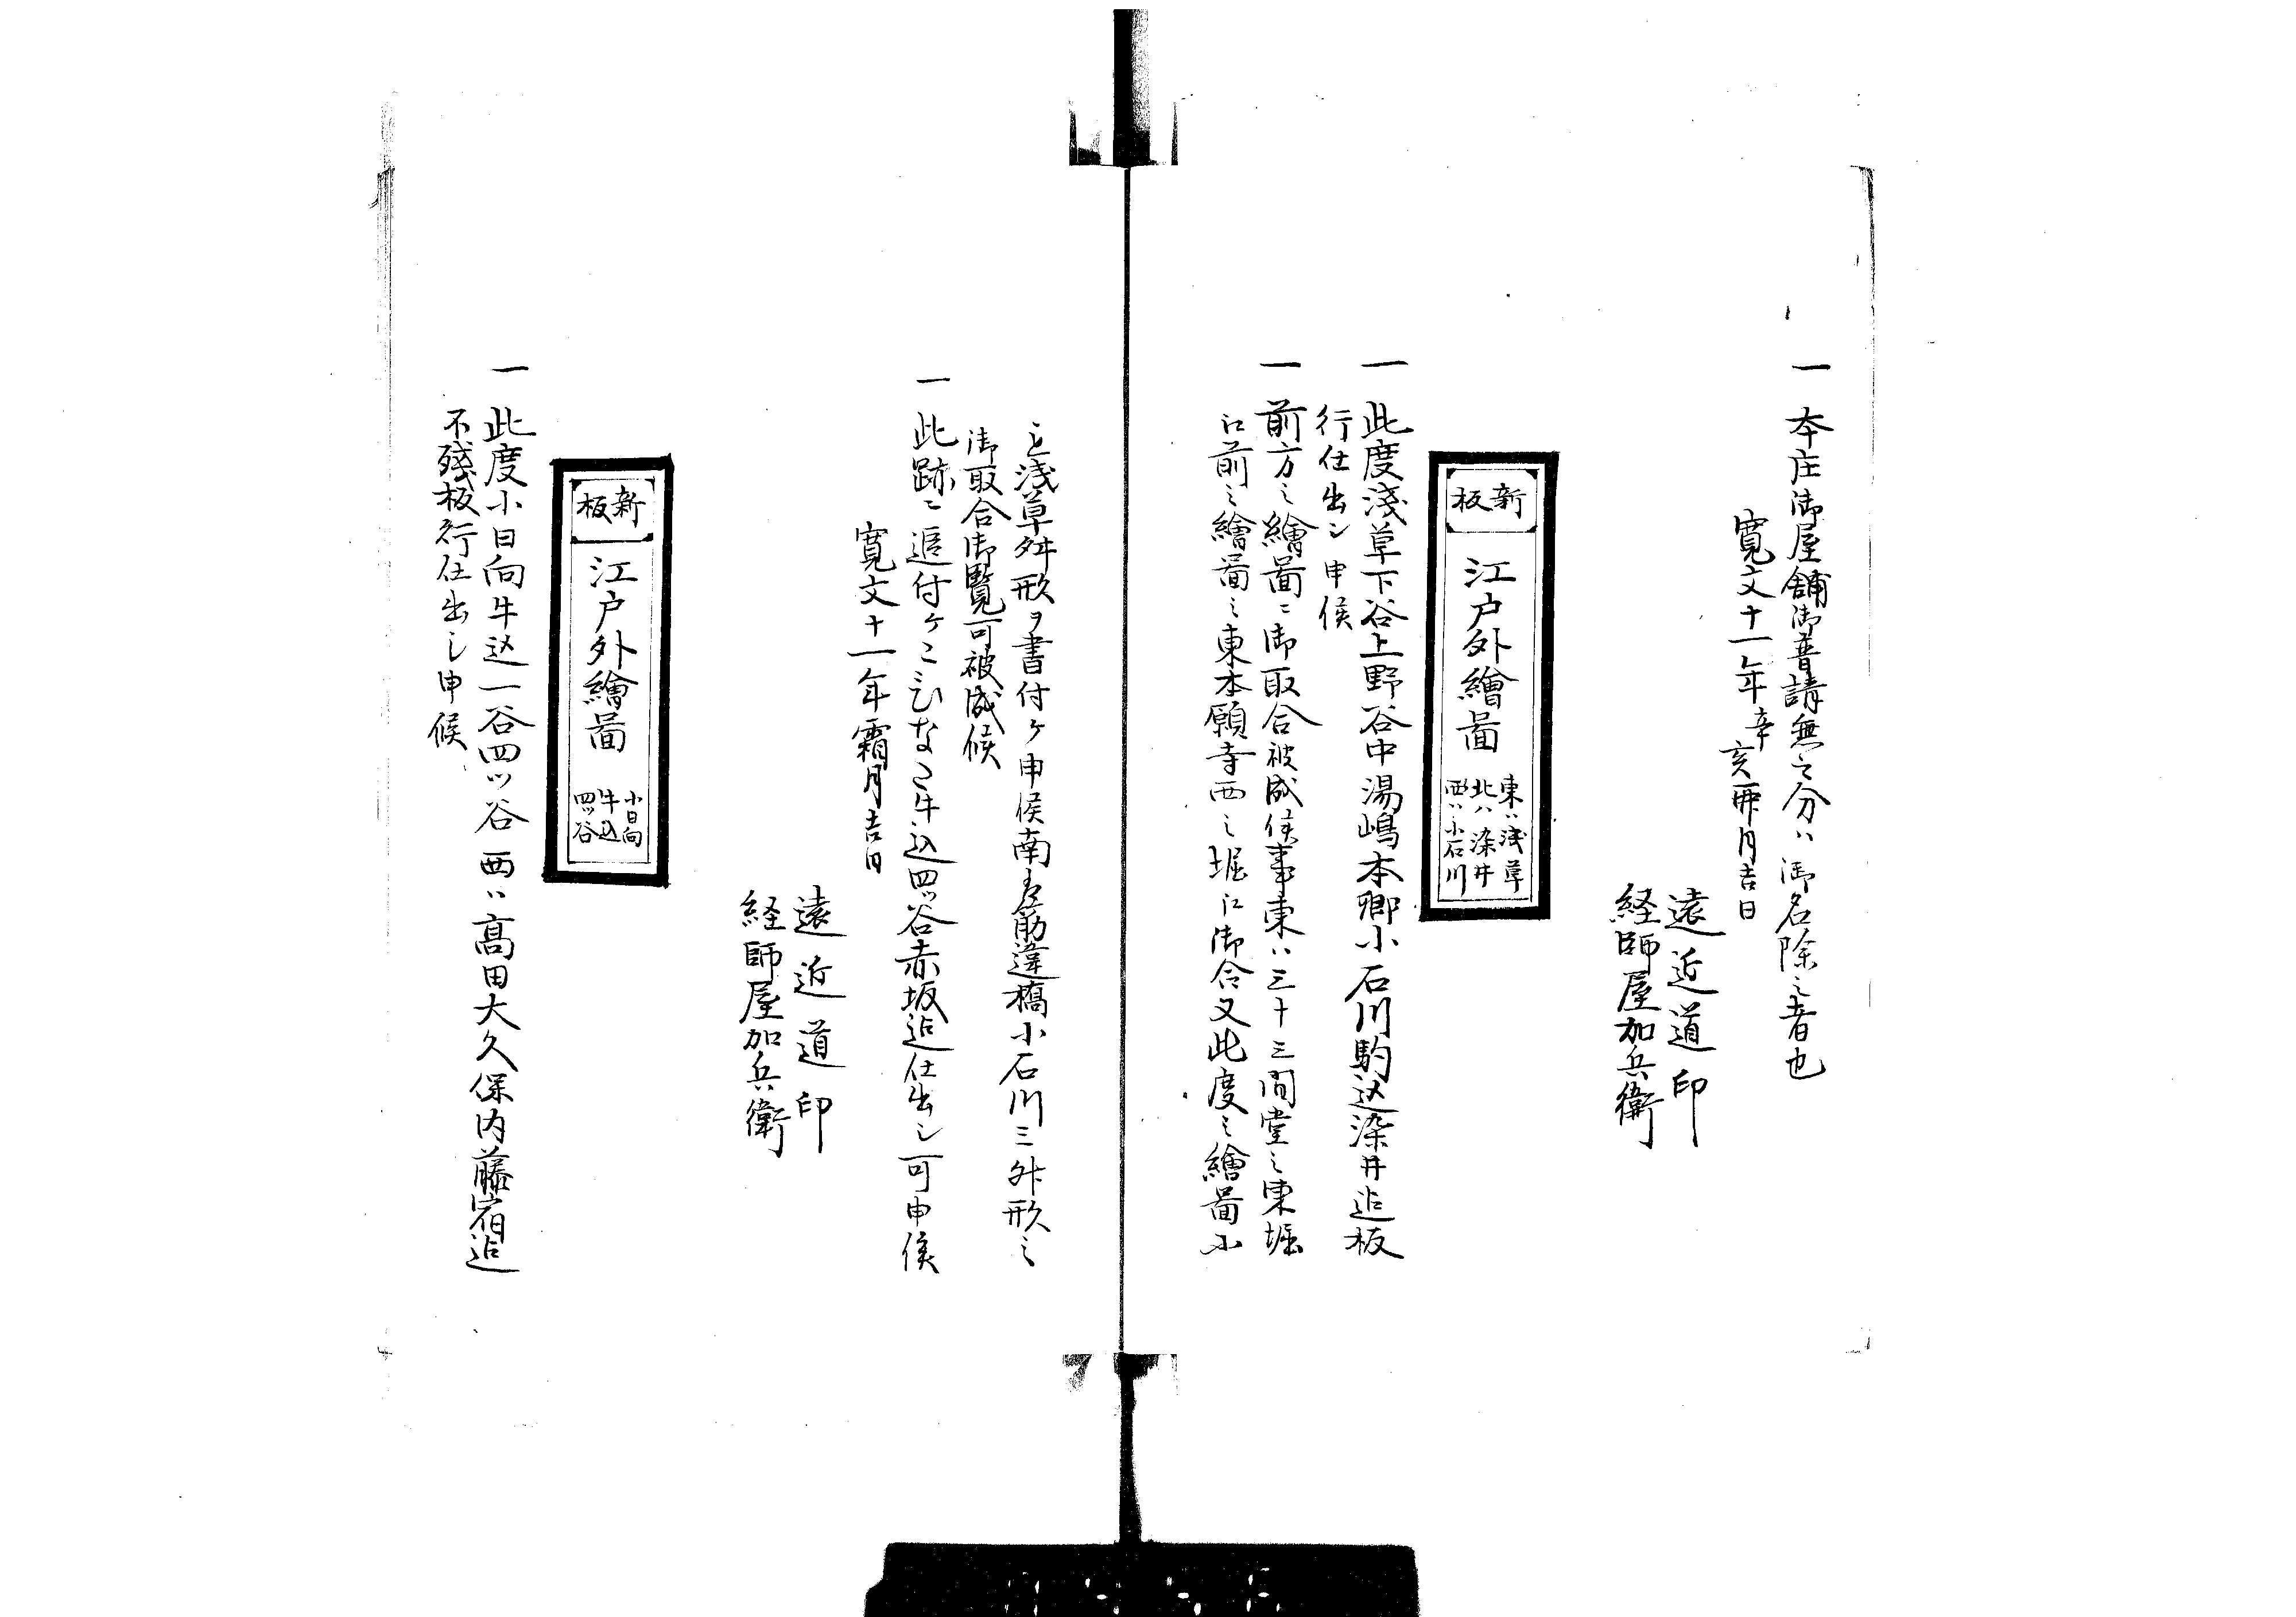 一 本庄御屋舗御普請無之分ハ御名除之者也
寛文十一年辛亥 月吉日
遠近道印
経師屋加兵衛
新板 江戸外繪圖 東ハ浅草 北ハ染井 西ハ小石川
一 此度淺草下谷上野谷中湯嶋本郷小石川駒込染井迄板
行仕出シ申候
一 前方之繪圖ニ御取合被成候事東ハ三十三間堂之東堀
江前之繪圖之東本願寺西之堀江御合又此度之繪圖小
浅草舛形ヲ書付ケ申候南 筋違橋小石川三舛形之
御取合御覧可被成候
一 此跡ニ追付ケこひなた牛込四ッ谷赤坂迄仕出シ可申候
寛文十一年霜月吉日
遠近道印
経師屋加兵衛
新板 江戸外繪圖 小日向 牛込 四ッ谷
一 此度小日向牛込一谷四ッ谷西ハ高田大久保内藤宿迄
不殘板行仕出シ申候